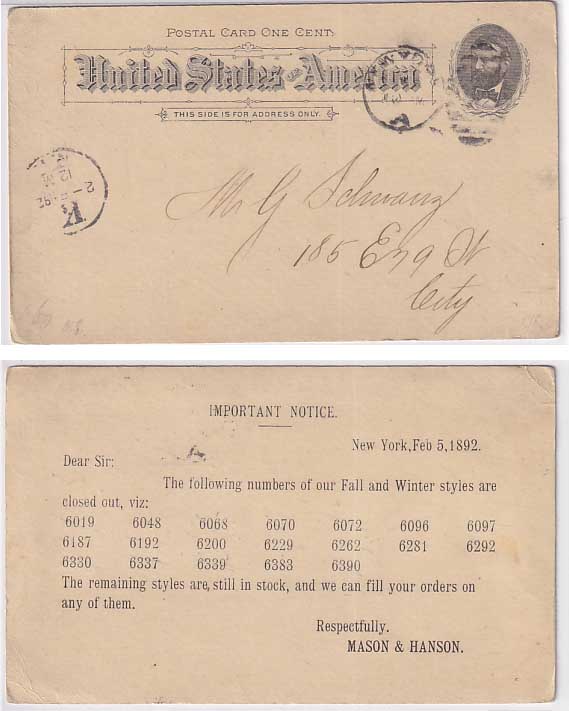 POSTAL CARD ONE CENT.
United States of America
THIS SIDE IS FOR ADDRESS ONLY.
NEW YORK
K
2 - 5
92
12 M
K
Mr G Schwarz
185 E 79 St
City
IMPORTANT NOTICE.
New York, Feb 5, 1892.
Dear Sir:
The following numbers of our Fall and Winter styles are
closed out, viz:
6019 6048 6068 6070 6072 6096 6097
6187 6192 6200 6229 6262 6281 6292
6330 6337 6339 6383 6390
The remaining styles are, still in stock, and we can fill your orders on
any of them.
Respectfully.
MASON & HANSON.